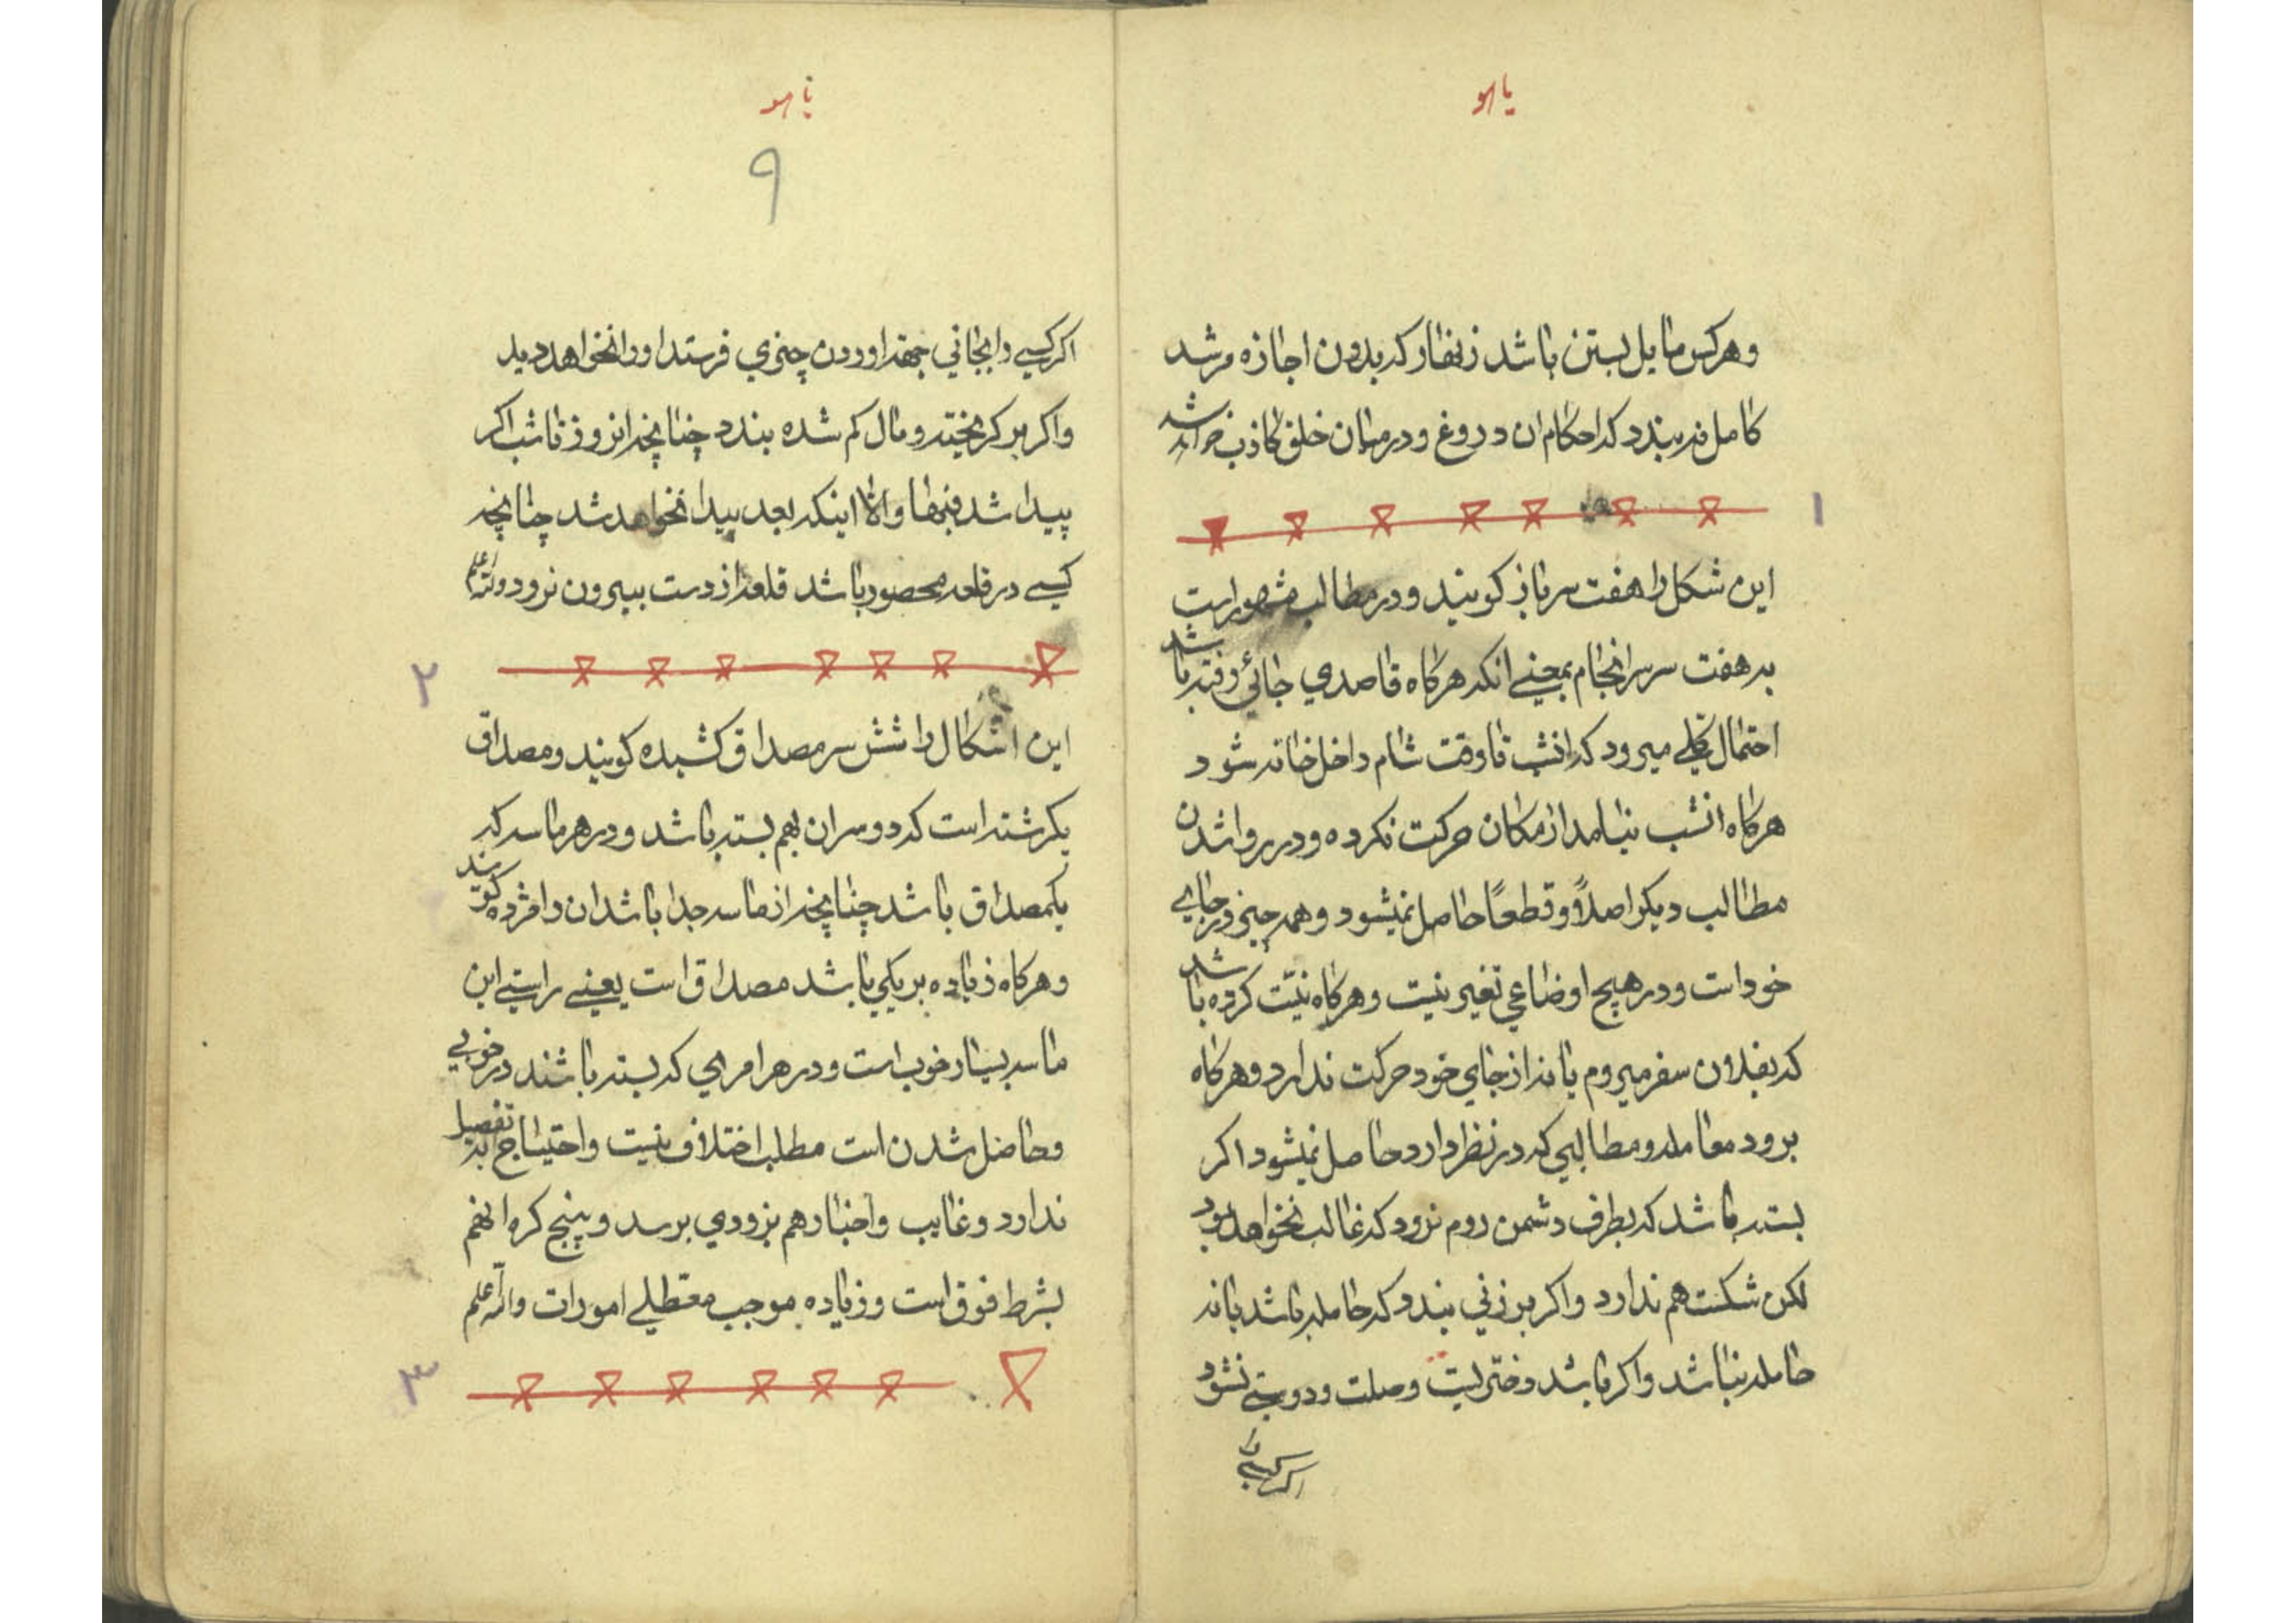 یاهو
وهرکس مایل بستن باشد زنهار که بدون اجازه مرشد
کامل نه بندد که احکام ان دروغ و درمیان خلق کاذب خواند شد
۱
این شکل را هفت سرباز کویند و در مطالب مشهور است
به هفت سر سرانجام بمعنی انکه هرکاه قاصدی جائی رفته باشد
احتمال کلی میرود که انشب تا وقت شام داخل خانه شود
هرکاه انشب نیامد از مکان حرکت نکرده و در روا شدن
مطالب دیکر اصلاً و قطعاً حاصل نمیشود و همه چیز در جای
خود است و در هیچ اوضاعی تغیر نیست و هرکاه نیّت کرده باشد
که بفلان سفر میروم یا نه از جای خود حرکت ندارد و هرکاه
برود معامله و مطالبی که در نظر دارد حاصل نمیشود اکر
بسته باشد که بطرف دشمن روم نرود که غالب نخواهد بود
لکن شکست هم ندارد و اکر بر زنی بندد که حامله باشد یا نه
حامله نباشد و اکر باشد دختر است وصلت و دوستی نشود
اکر کسی را
یاهو
۹
اکر کسی را بجائی جهة اوردن چیزی فرستد او را نخواهد دید
و اکر بر کریخته و مال کم شده بندد چنانچه انروز تا شب اکر
پیدا شد فبها و الّا اینکه بعد پیدا نخواهد شد چنانچه
کسی در قلعه محصور باشد قلعه از دست بیرون نرود و الله اعلم
۲
این اشکال را شش سر مصداق کشیده کویند و مصداق
یکرشته است که دو سر ان بهم بسته باشد و در هر ماسه که
یکمصداق باشد چنانچه از ماسه جدا باشد ان را مژده کویند
و هرکاه زیاده بر یکی باشد مصداق است یعنی راستی این
ماسه بسیار خوب است و در هر امری که بسته باشند در خوبی
و حاصل شدن است مطلب اختلاف نیست و احتیاج به تفصیل
ندارد و غایب و اخبار هم بزودی برسد و پنج کره انهم
بشرط فوق است و زیاده موجب معتطلی امورات و الله اعلم
۳